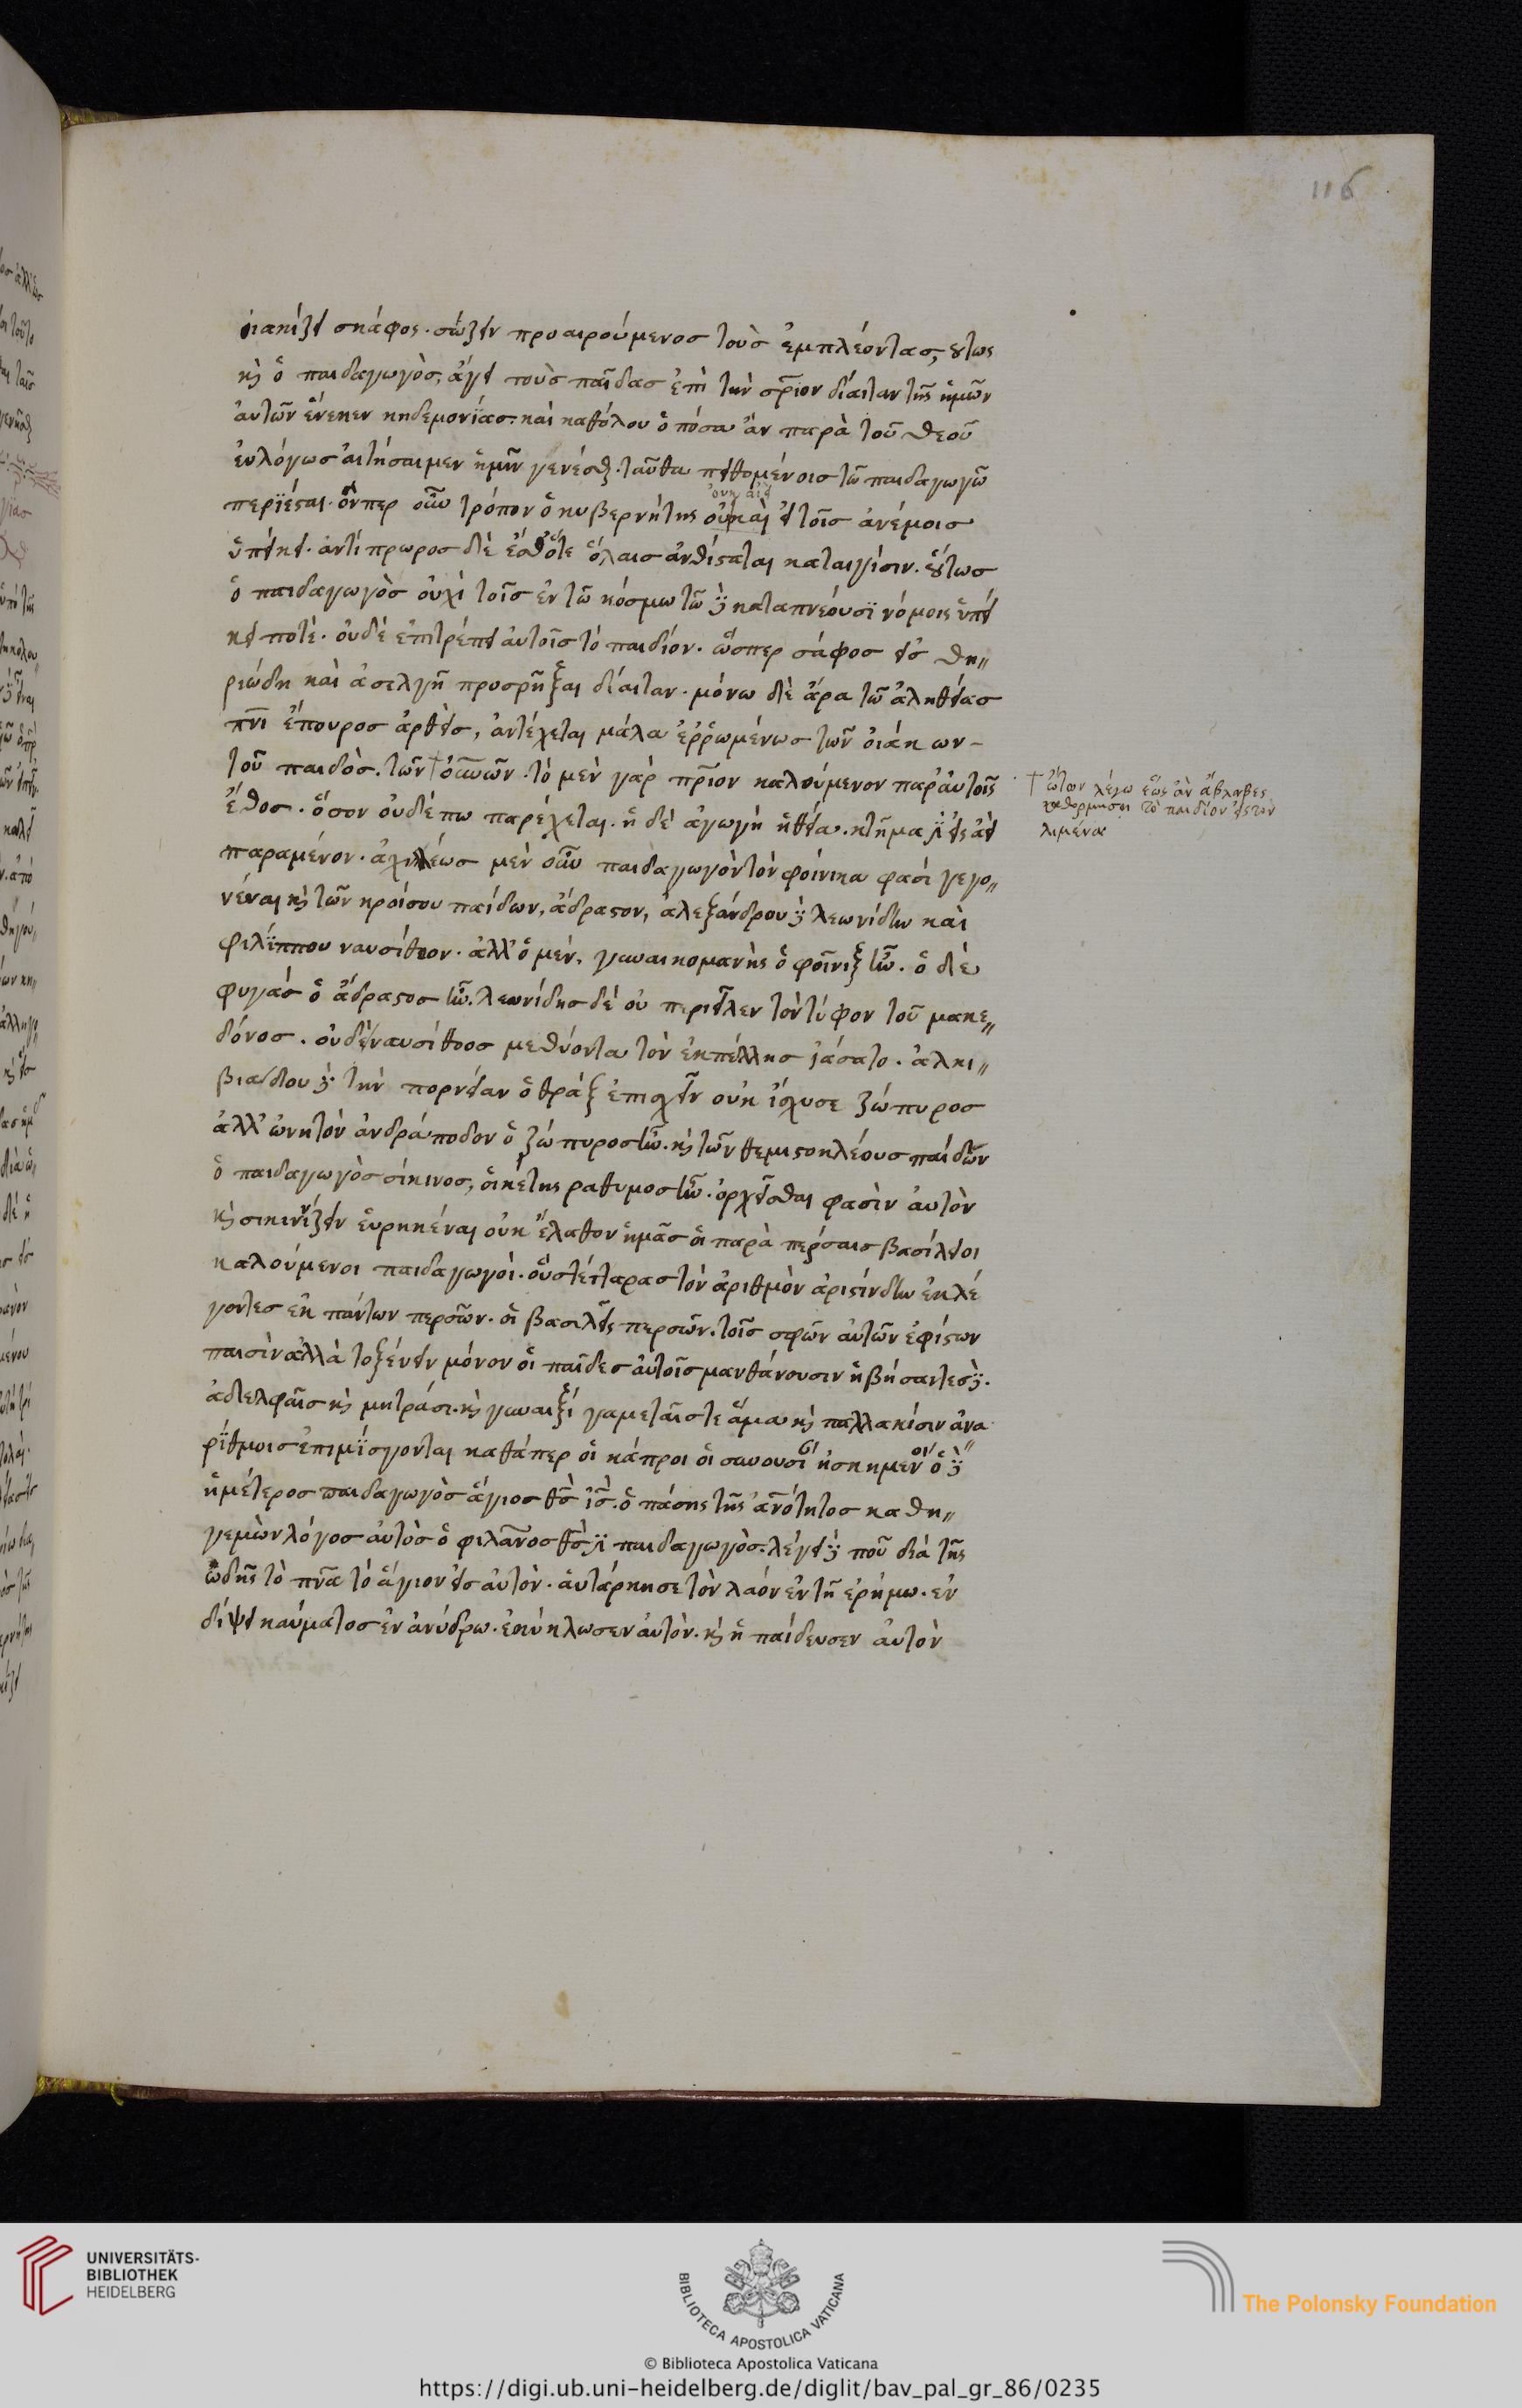 116
οἰακίζει σκάφος· σώζειν προαιρούμενος τοὺς ἐμπλέοντας, οὕτως
κὶ ὁ παιδαγωγὸς, ἄγει τοὺς παῖδας ἐπὶ τὴν σριον δίαιταν τῆς ἡμῶν
αὐτῶν ἕνεκεν κηδεμονίας· καὶ καθόλου ὁπόσα ἂν παρὰ τοῦ θεοῦ
εὐλόγως αἰτήσαιμεν ἡμῖν γενέσθαι· ταῦτα πειθομένοις τῶ παιδαγωγῶ
περιέσται· ὅνπερ οὖν τρόπον ὁ κυβερνήτης οὐκαὶ εἰ τοῖς ἀνέμοις
οὐκ αἰεὶ
ὑπείκει· ἀντίπρωρος δὲ ἔσθ' ὅτε ὅλαις ἀνθίσταται καταιγίσιν· οὕτως
ὁ παιδαγωγὸς οὐχὶ τοῖς ἐν τῶ κόσμω τῶδε καταπνέουσι νόμοις ὑπεί
κει ποτέ· οὐδὲ ἐπιτρέπει αὐτοῖς τὸ παιδίον· ὥσπερ σάφος εἰς θη
ριώδη καὶ ἀσελγῆ προσρῆξαι δίαιταν· μόνω δὲ ἄρα τῶ ἀληθείας
πνι ἔπουρος ἀρθεὶς, ἀντέχεται μάλα ἐρρωμένως τῶν οἰάκων
τοῦ παιδὸς. τῶν † ὀ͂των· τὸ μὲν γὰρ πριον καλούμενον παρ' αὐτοῖς
ἔθος· ὅσον οὐδέπω παρέχεται· ἡ δὲ ἀγωγὴ ἡ θεία· κτῆμά ἐστι εἰς ἀεὶ
παραμένον· ἀχιλλέως μὲν οὖν παιδαγωγὸν τὸν φοίνικα φασὶ γεγο
νέναι κὶ τῶν κροίσου παίδων, ἄδραστον, ἀλεξάνδρου δὲ λεωνίδην καὶ
φιλίππου ναυσίθοον· ἀλλ' ὁ μέν, γυναικομανὴς ὁ φοῖνιξ ἦν. ὁ δὲ
φυγὰς ὁ ἄδραστος ἦν. λεωνίδης δὲ οὐ περιεῖλεν τὸν τύφον τοῦ μακε
δόνος. οὐδὲ ναυσίθοος μεθύοντα τὸν ἐκ πέλλης ἰάσατο. ἀλκι
βιάδου δὲ τὴν πορνείαν ὁ θρᾲξ ἐπισχεῖν οὐκ ἴσχυσε ζώπυρος
ἀλλ' ὠνητὸν ἀνδράποδον ὁ ζώπυρος ἦν. κὶ τῶν θεμιστοκλέους παίδων
ὁ παιδαγωγὸς σίκινος, οἰκέτης ῥάθυμος ἦν. ὀρχεῖσθαι φασὶν αὐτὸν
κὶ σικιννίζειν εὑρηκέναι οὐκ ἔλαθον ἡμᾶς οἱ παρὰ πέρσαις βασίλειοι
καλούμενοι παιδαγωγοί· οὓς τέτταρας τὸν ἀριθμὸν ἀριστίνδην ἐκλέ
γοντες ἐκ πάντων περσῶν· οἱ βασιλεῖς περσῶν· τοῖς σφῶν αὐτῶν ἐφίστων
παισὶν ἀλλὰ τοξεύειν μόνον οἱ παῖδες αὐτοῖς μανθάνουσιν ἡβήσαντες δὲ
ἀδελφαῖς κὶ μητράσι· κὶ γυναιξὶ γαμεταῖς τε ἅμα κὶ παλλακίσιν ἀνα
ρίθμοις ἐπιμίσγονται καθάπερ οἱ κάπροι οἱ συνουσί ἠσκημένοι ὁ δὲ
ἡμέτερος παιδαγωγὸς ἅγιος θς ις. ὁ πάσης τῆς ἀνότητος καθη
γεμὼν λόγος αὐτὸς ὁ φιλανος θς ἐστι παιδαγωγός. λέγει δὲ που διὰ τῆς
ὠδῆς τὸ πνα τὸ ἅγιον εἰς αὐτόν· αὐτάρκησε τὸν λαὸν ἐν τῆ ἐρήμω· ἐν
δίψει καύματος ἐν ἀνύδρω· ἐκύκλωσεν αὐτόν· κὶ ἐπαίδευσεν αὐτὸν
† ὤτων λέγω ἕως ἂν ἀβλαβὲς
καθορμήσῃ τὸ παιδίον εἰς τὸν
λιμένα
UNIVERSITÄTS-
BIBLIOTHEK
HEIDELBERG
BIBLIOTECA APOSTOLICA VATICANA
The Polonsky Foundation
© Biblioteca Apostolica Vaticana
https://digi.ub.uni-heidelberg.de/diglit/bav_pal_gr_86/0235